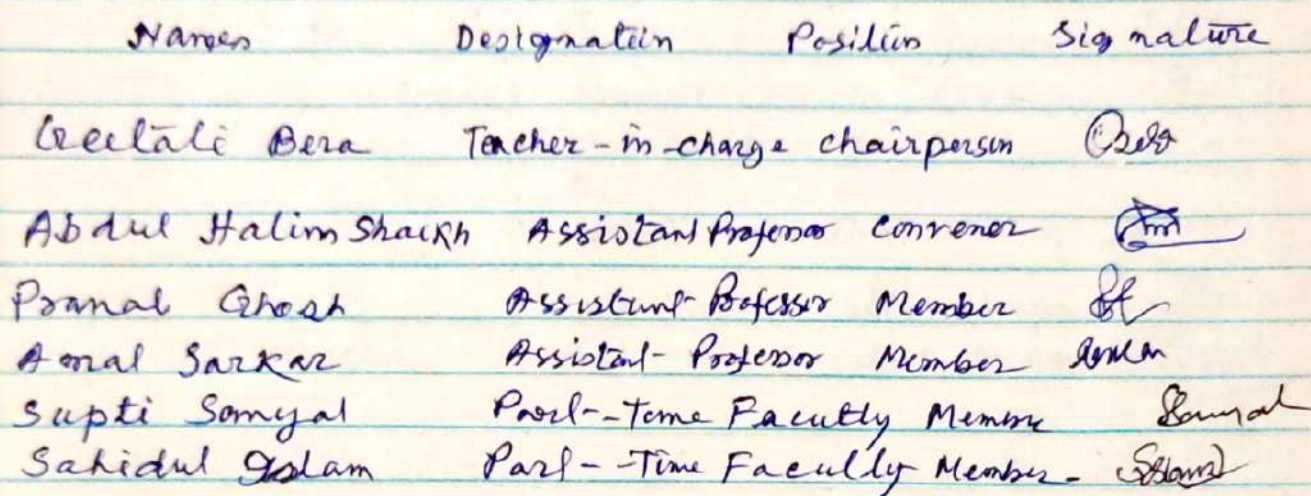 Names Designation Position Signature
Geetali Bera Teacher-in-charge chairperson
Abdul Halim Shaikh Assistant Professor Convener
Pranal Ghosh Assistant Professor Member
Amal Sarkar Assistant Professor Member
Supti Sanyal Part-Time Faculty Member Sanyal
Sahidul Islam Part-Time Faculty Member